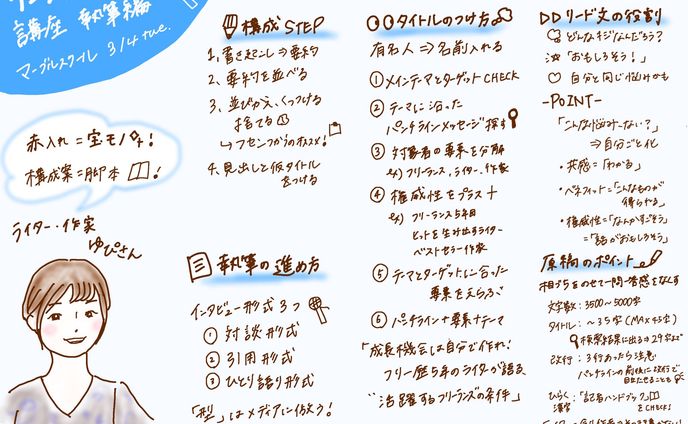 講座 執筆編
マーブルスクール 3/4 tue.
赤入れ=宝モノ!
構成案=脚本 !
ライター・作家
ゆぴさん
構成 STEP
1. 書き起こし⇒要約
2. 要約を並べる
3. 並びかえ、くっつける
捨てる
↳フセンつかうのオススメ!
4. 見出しと仮タイトル
をつける
執筆の進め方
インタビュー形式3つ
① 対談形式
② 引用形式
③ ひとり語り形式
「型」はメディアに倣う!
タイトルのつけ方
有名人 ⇒ 名前入れる
① メインテーマとターゲットCHECK
② テーマに沿った
パンチラインメッセージ探す
③ 対象者の要素を分解
ex) フリーランス、ライター、作家
④ 権威性をプラス+
ex) フリーランス5年目
ヒットを生み出すライター
ベストセラー作家
⑤ テーマとターゲットに合った
要素をえらぶ
⑥ パンチライン+要素+テーマ
「成長機会は自分で作れ!
フリー歴5年のライターが語る
"活躍するフリーランスの条件"」
リード文の役割
どんなキジなんだろう?
「おもしろそう!」
自分と同じ悩みかも
-POINT-
「こんな悩みな〜い?」
⇒自分ごと化
・共感=「わかる」
・ベネフィット=「こんなものが
得られる」
・権威性=「なんかすごそう」
=「話がおもしろそう」
原稿のポイント
相づちをのせて一問一答感をなくす
文字数:3500〜5000字
タイトル:〜35字(MAX45字)
検索結果に出るのは29字まで
改行:3行あったら注意
パンチラインの前後に改行で
目立たせることも
ひらく:「記者ハンドブック」
漢字 をCHECK!